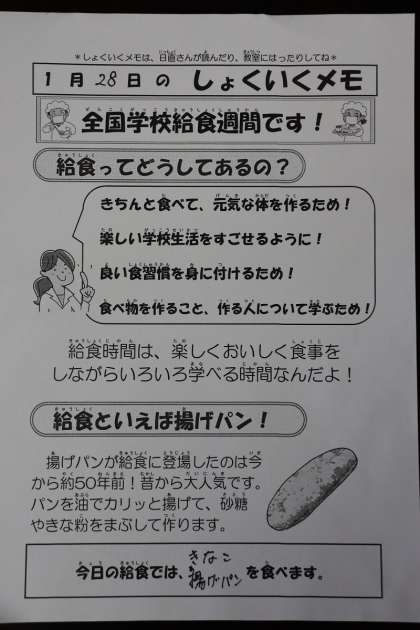 ＊しょくいくメモは、日直さんが読んだり、教室にはったりしてね＊
1月28日の しょくいくメモ
全国学校給食週間です！
給食ってどうしてあるの？
きちんと食べて、元気な体を作るため！
楽しい学校生活をすごせるように！
良い食習慣を身に付けるため！
食べ物を作ること、作る人について学ぶため！
給食時間は、楽しくおいしく食事を
しながらいろいろ学べる時間なんだよ！
給食といえば揚げパン！
揚げパンが給食に登場したのは今
から約50年前！昔から大人気です。
パンを油でカリッと揚げて、砂糖
やきな粉をまぶして作ります。
今日の給食では、きなこ揚げパンを食べます。